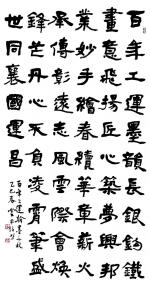 百年工運墨韻長銀鉤鐵
畫意飛揚匠心築夢興偉
業妙手繪春續華章薪火
承傳彰遠志風雲際會煥
鋒芒丹心不負凌霄筆盛
世同襄國運昌
百年工運翰墨千秋
乙巳春